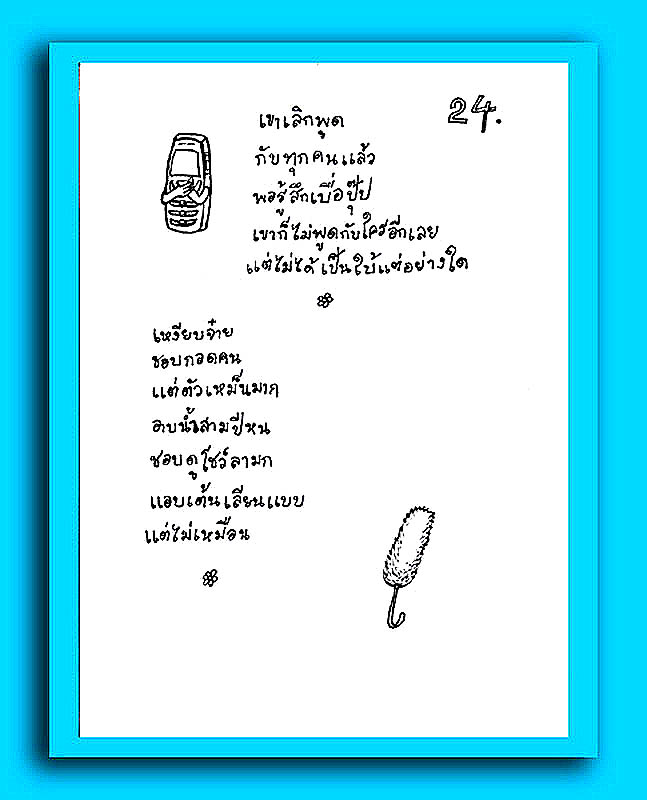 24.
เขาเลิกพูด
กับทุกคนแล้ว
พอรู้สึกเบื่อปุ๊ป
เขาก็ไม่พูดกับใครอีกเลย
แต่ไม่ได้เป็นใบ้แต่อย่างใด
เหงียบจ๋าย
ชอบกอดคน
แต่ตัวเหม็นมาก
อาบน้ำสามปีหน
ชอบดูโชว์ลามก
แอบเต้นเลียนแบบ
แต่ไม่เหมือน